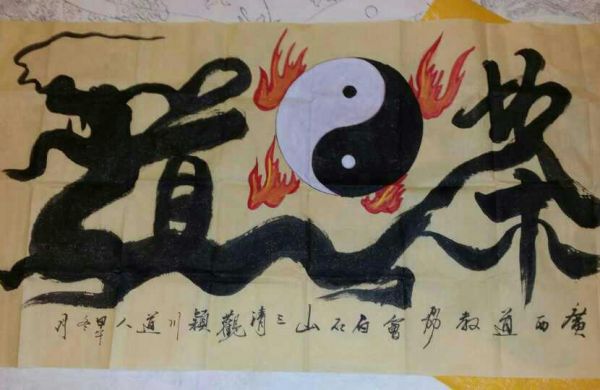 道
廣西道教协會白石山三清觀穎川道人甲午冬月